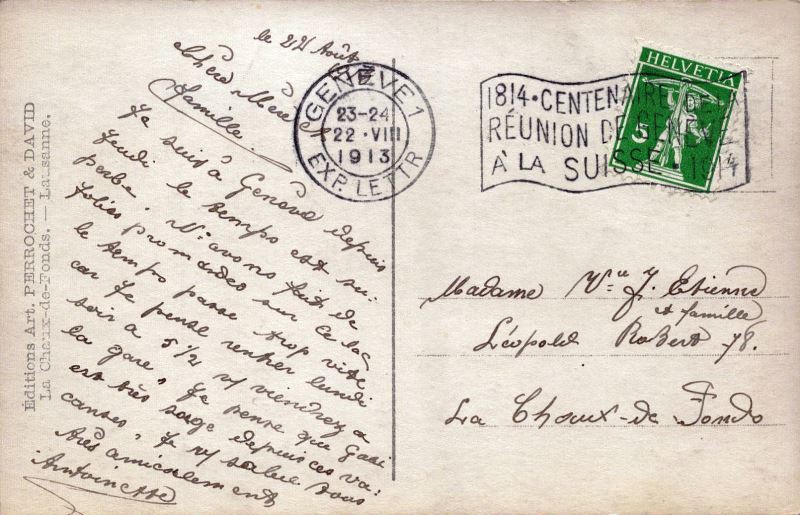 Éditions Art. PERROCHET & DAVID
La Chaux-de-Fonds. — Lausanne.
le 22 Août
Chère Mère &
famille
Je suis à Genève depuis
jeudi le temps est su-
perbe. N. avons fait de
jolies promandes sur le lac
le temps passe trop vite
car je pense rentrer lundi
soir à 5½ v/ viendrez a
la gare" Je pense que
est très sage depuis ces va-
canses". Je v/ salue tous
très amicalement
Antoinette
GENÈVE 1
23-24
22·VIII
1913
EXP. LETTR
1814·CENTENAIRE DE LA
RÉUNION DE GENÈVE
À LA SUISSE·1914
HELVETIA
5
Madame Vve J. Etienne
et famille
Léopold Robert 78.
La Choux-de Fonds